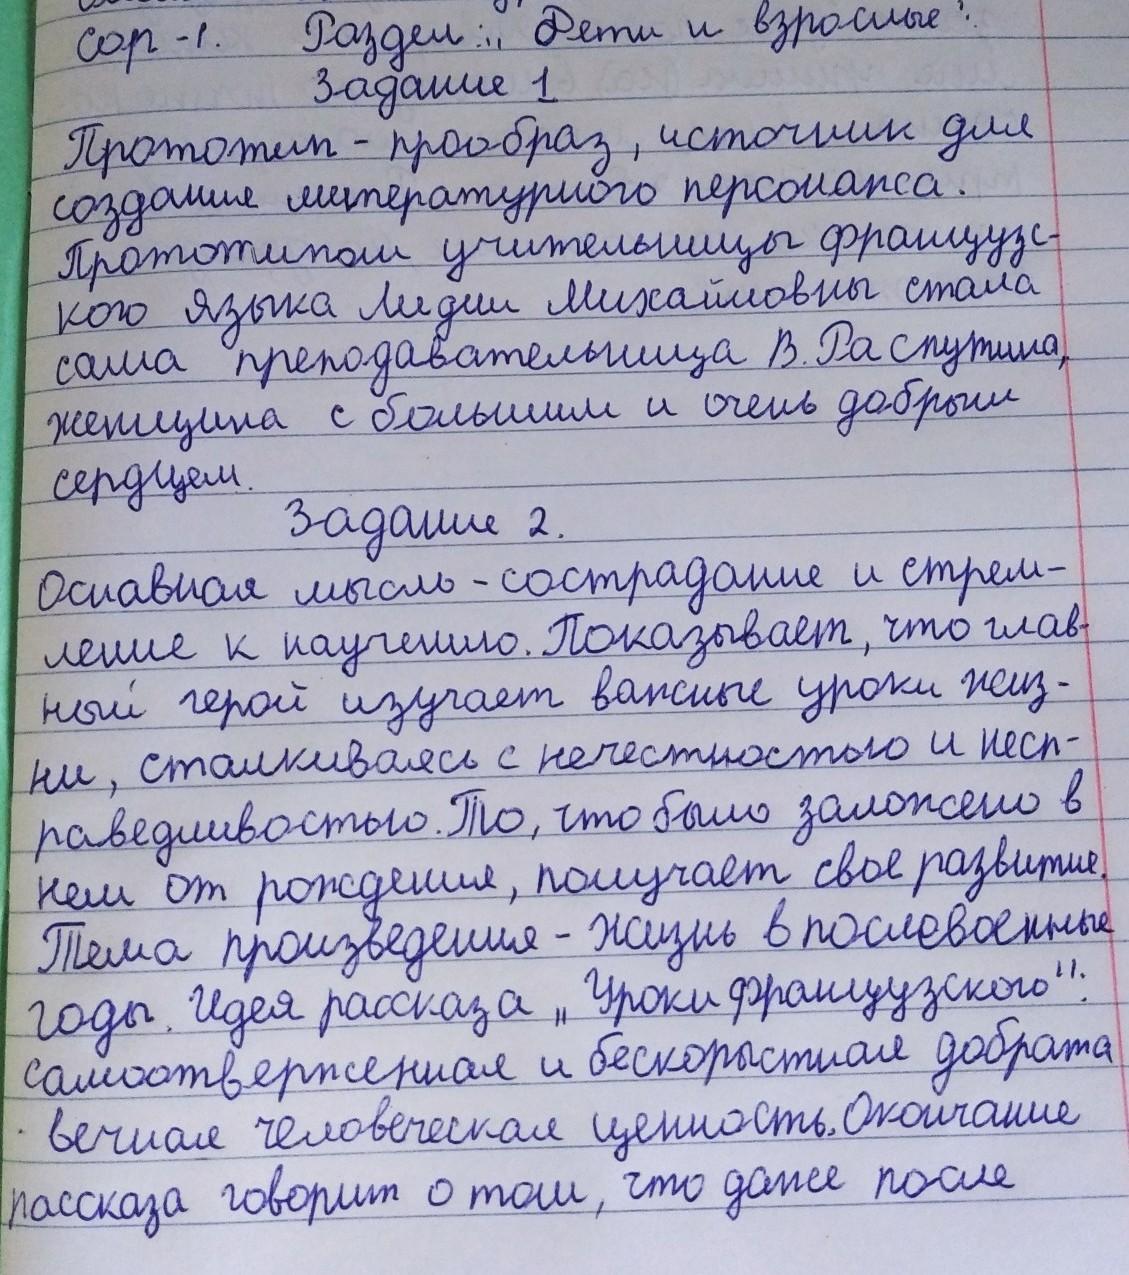 Сор-1. Раздел: „Дети и взрослые".
Задание 1
Прототип - прообраз, источник для
создания литературного персонажа.
Прототипом учительницы французс-
кого языка Лидии Михайловны стала
сама преподавательница В. Распутина,
женщина с большим и очень добрым
сердцем.
Задание 2.
Оснавная мысль - сострадание и стрем-
ление к научению. Показывает, что глав-
ный герой изучает важные уроки жиз-
ни, сталкиваясь с нечестностью и несп-
раведливостью. То, что было заложено в
нем от рождения, получает свое развитие.
Тема произведения - жизнь в послевоенные
годы. Идея рассказа „Уроки французского":
самоотверженная и бескорыстная добрата
вечная человеческая ценность. Окончание
рассказа говорит о том, что даже после